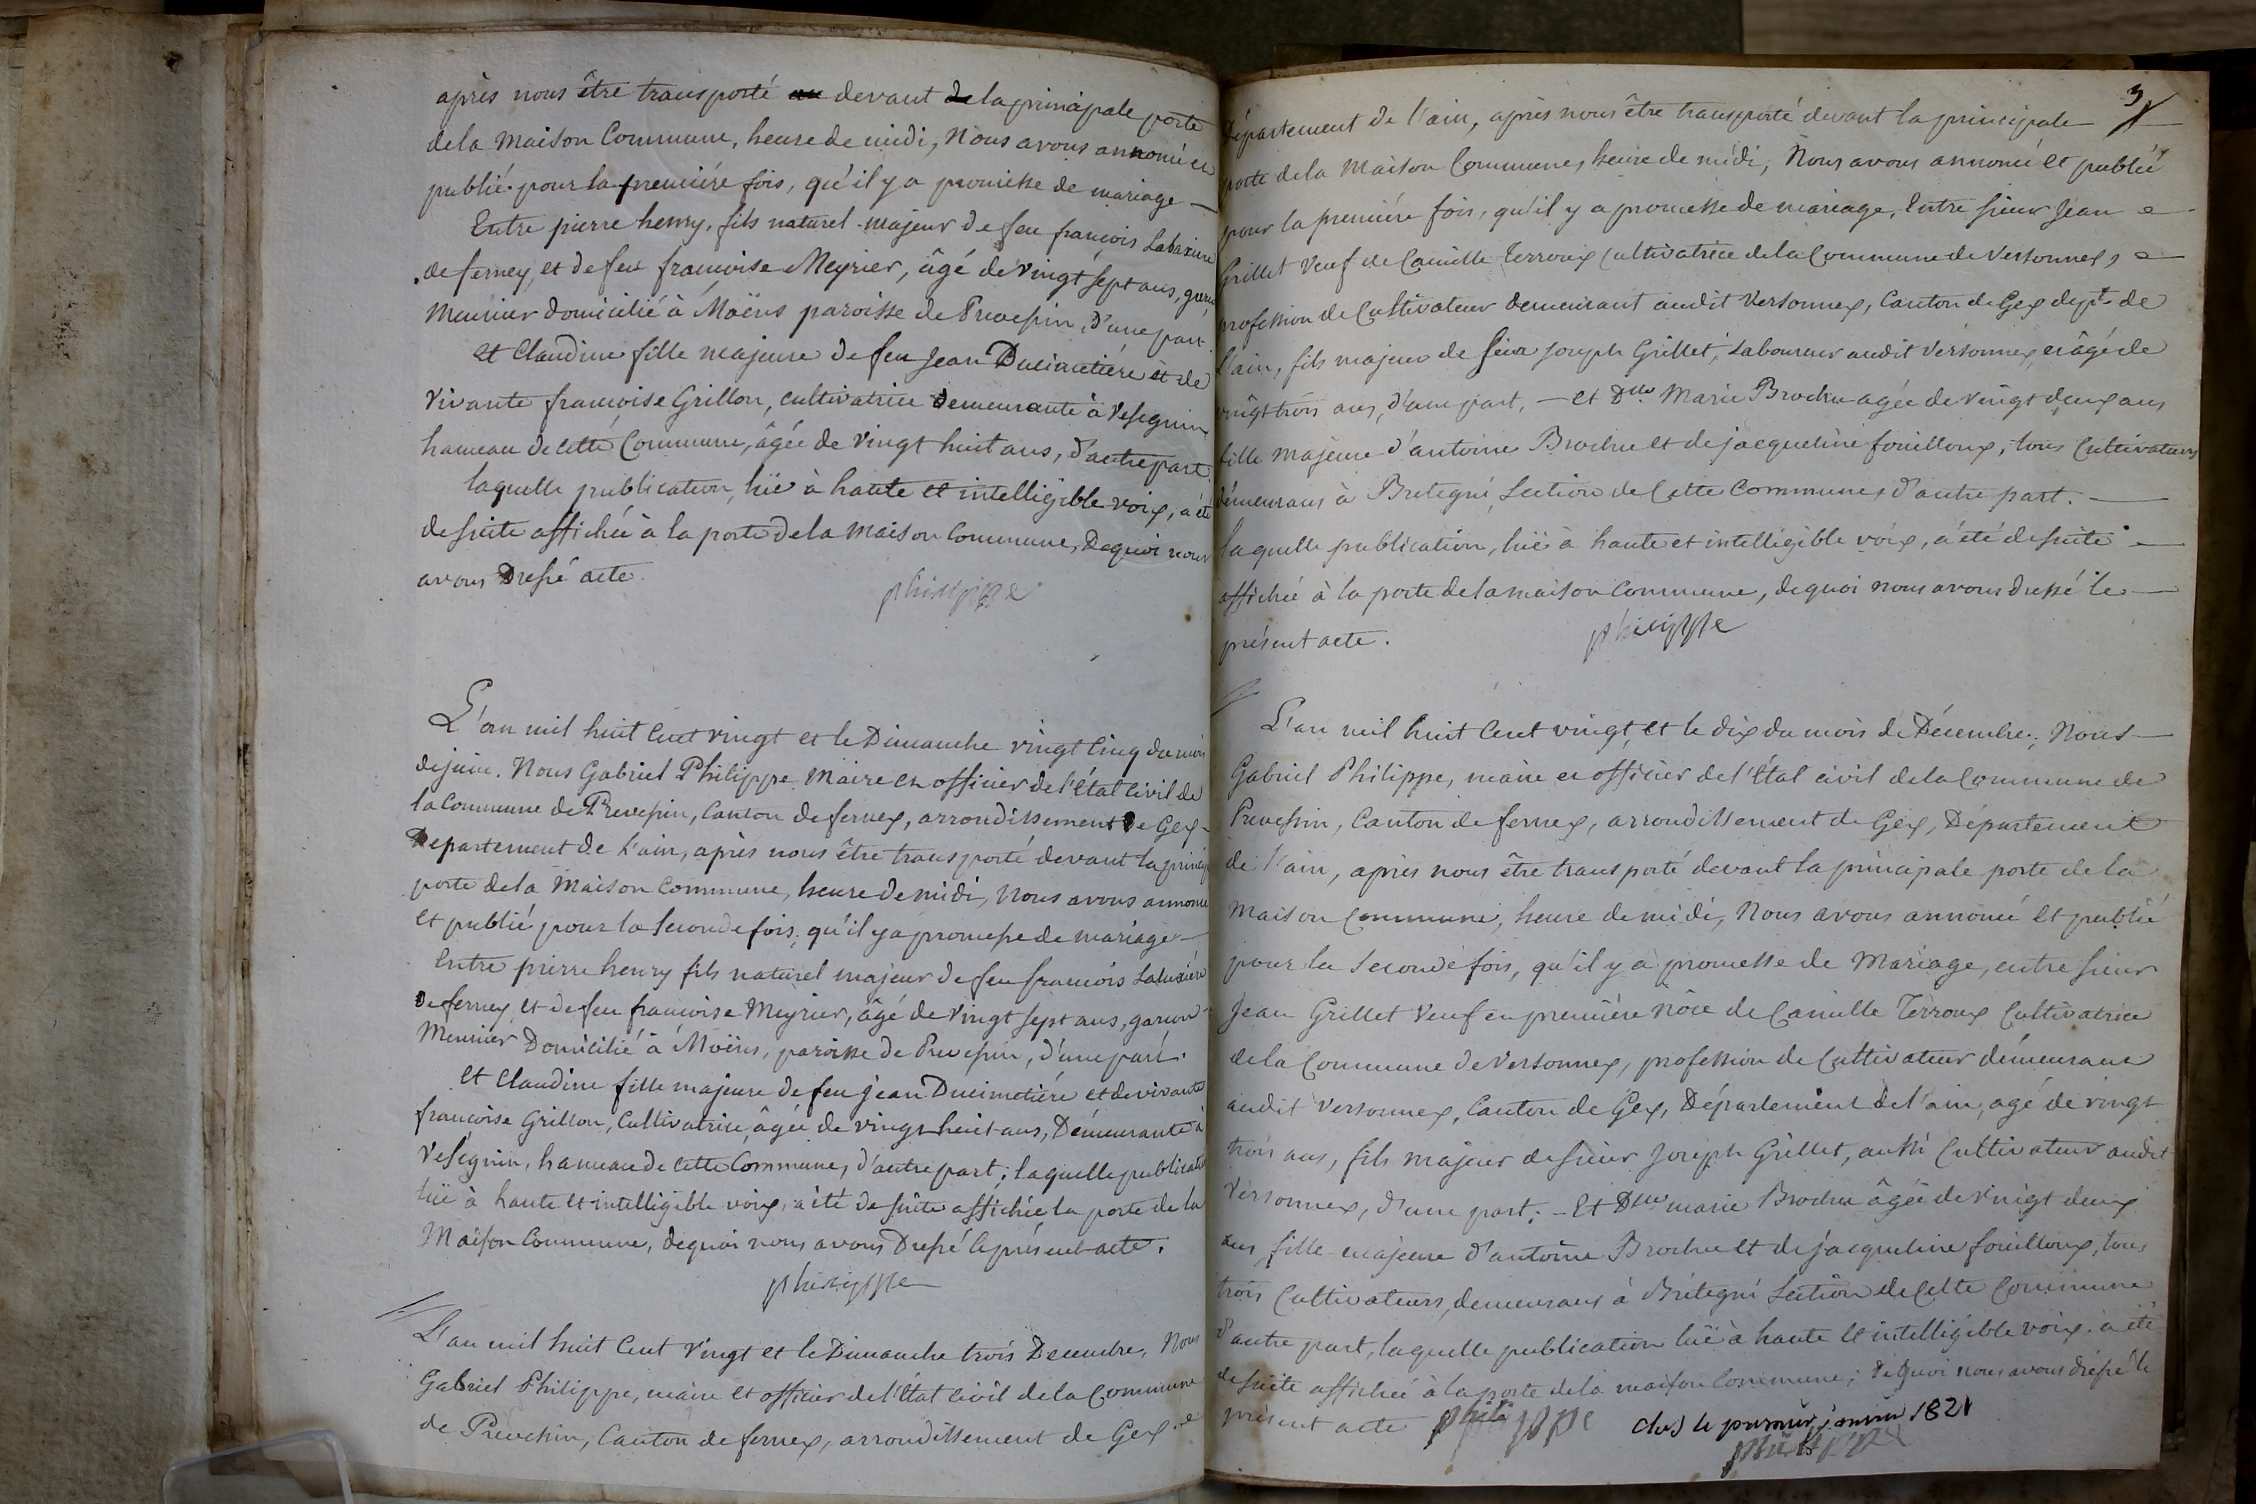 après nous être transporté au devant de la principale porte
de la Maison Commune, heure de midi, Nous avons annoncé et
publié pour la première fois, qu'il y a promesse de mariage —
Entre pierre henry, fils naturel majeur de feu françois
de ferney, et de feu françoise Meyrier, âgé de vingt sept ans, garçon
Meunier domicilié à Moëns paroisse de Prevessin, d'une part
et Claudine fille majeure de feu Jean Ducimetiére et de
Vivante françoise Grillon, cultivatrice demeurante à Vésegnin
hameau de cette Commune, âgée de vingt huit ans, d'autre part
laquelle publication, lüe à haute et intelligible voix, a été
de suite affichée à la porte de la Maison Commune, Dequoi nous
avons Dressé acte.
philippe
L'an mil huit Cent vingt et le Dimanche vingt Cinq du mois
de juin. Nous Gabriel Philippe Maire et officier de l'État Civil de
la Commune de Prevessin, Canton de ferney, arrondissement De Gex –
Departement de l'ain, après nous être transporté devant la princip
porte de la Maison Commune, heure de midi, Nous avons annoncé
et publié pour la seconde fois, qu'il y a promesse de mariage —
Entre pierre henry fils naturel majeur de feu françois
De ferney et de feu françoise Meyrier, âgé de vingt sept ans, garçon
Meunier Domicilié à Moëns, paroisse de Prevessin, d'une part.
Et Claudine fille majeure de feu Jean Ducimetiére et de vivante
françoise Grillon, Cultivatrice, âgée de vingt huit ans, Démeurante à
Vésegnin, hameau de cette Commune, d'autre part; laquelle publication
lüe à haute et intelligible voix, a été de suite affichée la porte de la
Maison Commune, dequoi nous avons Dressé le présent acte.
philippe
L'an mil huit Cent Vingt et le Dimanche trois Decembre, Nous
Gabriel Philippe, maire et officier de l'État Civil de la Commune
de Prevessin, Canton de ferney, arrondissement de Gex
3
Département de l'ain, après nous être transporté devant la principale
porte de la Maison Commune, heure de midi, Nous avons annoncé et publié
pour la première fois, qu'il y a promesse de mariage, Entre sieur Jean
Grillet Veuf de Camille Terroux Cultivatrice de la Commune de Versonnex,
profession de Cultivateur demeurant audit Versonnex, Canton de Gex dept. de
l'ain, fils majeur de sieur Joseph Grillet, Laboureur audit Versonnex, et âgé de
vingt trois ans, d'une part, — et Dlle Marie Brochu agée de vingt deux ans
fille majeure d'antoine Brochu et de jacqueline fouilloux, tous Cultivateurs
démeurans à Bretegni, Section de Cette Commune, d'autre part. —
laquelle publication, lüe à haute et intelligible voix, a été de suite —
affichée à la porte de la maison Commune, dequoi nous avons dressé le —
présent acte.
philippe
L'an mil huit Cent vingt, et le dix du mois de Décembre, Nous —
Gabriel Philippe, maire et officier de l'État civil de la Commune de
Prevessin, Canton de ferney, arrondissement de Gex, Département
de l'ain, après nous être transporté devant la principale porte de la
Maison Commune, heure de midi, Nous avons annoncé et publié
pour la Seconde fois, qu'il y a promesse de Mariage, entre sieur
Jean Grillet Veuf en première nôce de Camille Terroux Cultivatrice
de la Commune de Versonnex, profession de Cultivateur démeurant
audit Versonnex, Canton de Gex, Département de l'ain, agé de vingt
trois ans, fils majeur de sieur Joseph Grillet, aussi Cultivateur audit
Versonnex, d'une part; – Et Dlle marie Brochu âgée de vingt deux
ans, fille majeure d'antoine Brochu et de jacqueline fouilloux, tous
trois Cultivateurs, demeurans à Brétegni Section de Cette Commune
d'autre part, laquelle publication lüe à haute et intelligible voix, a été
de suite affichée à la porte de la maison Commune; de quoi nous avons dressé le
présent acte philippe clos le premier janvier 1821
philippe